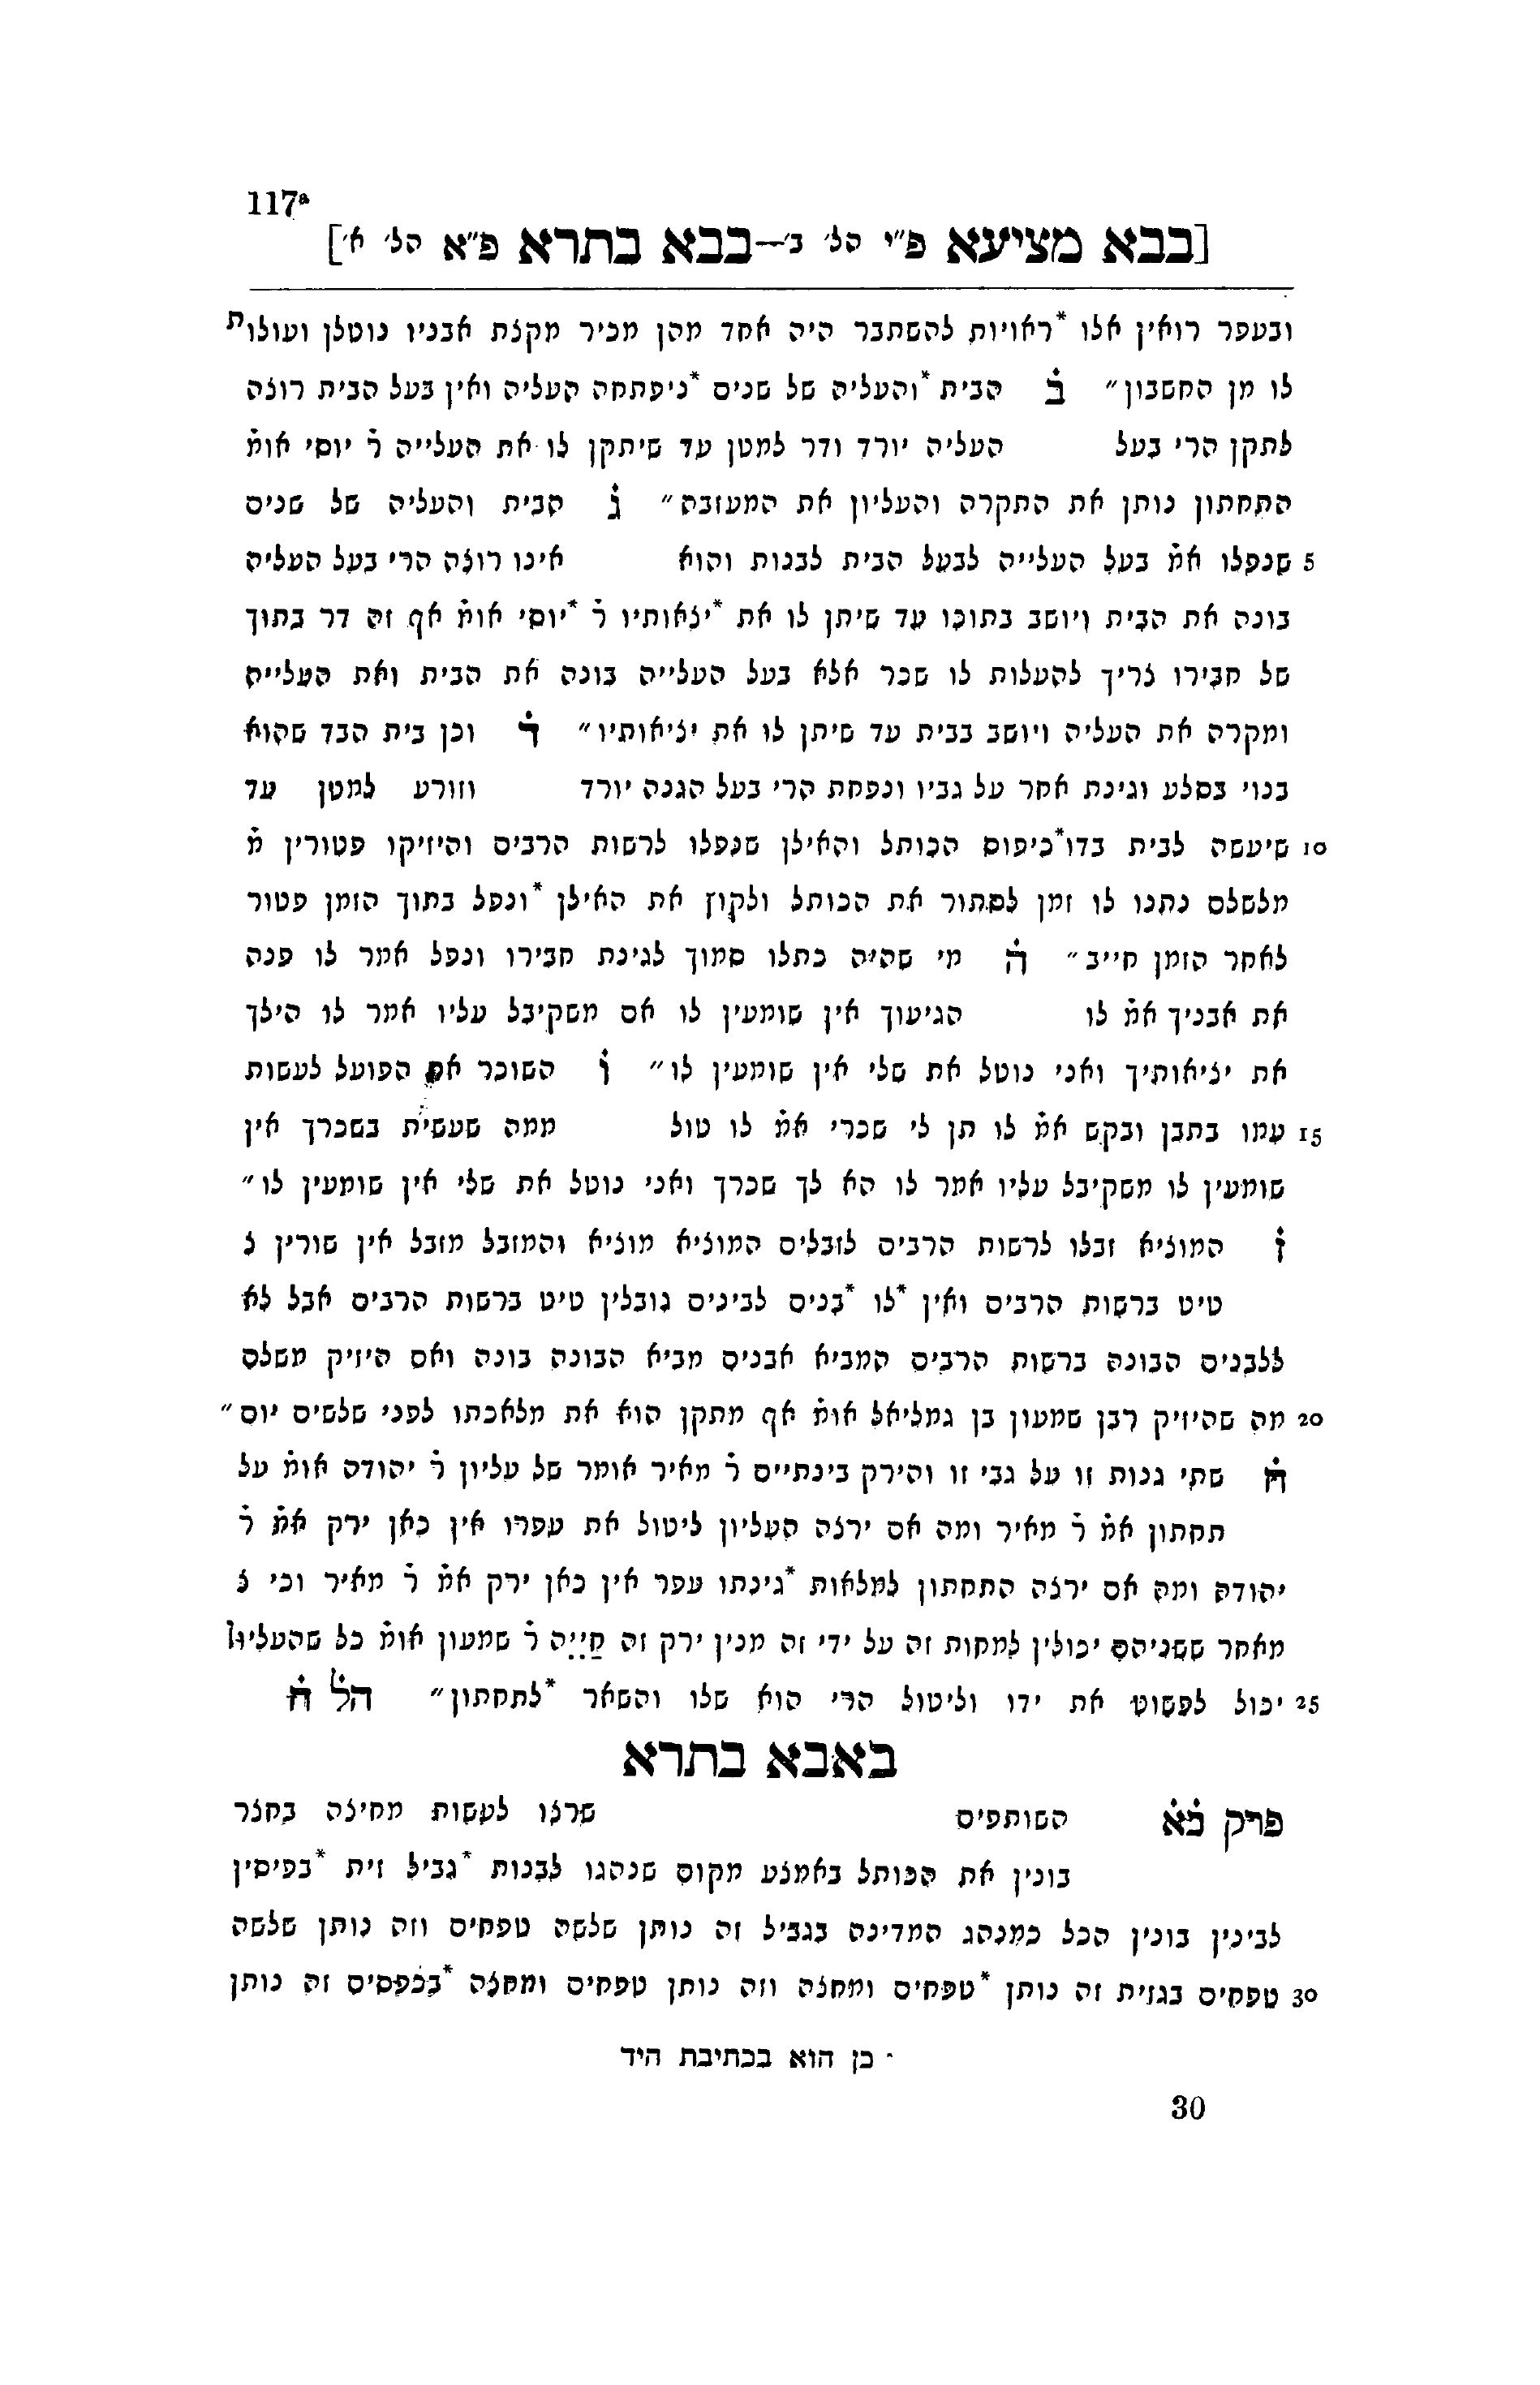 117ª
[בבא מציעא פ"י הל' ב'—בבא בתרא פ"א הל' א']
ובעפר רואין אלו *ראויות להשתבר היה אחד מהן מכיר מקצת אבניו נוטלן ועולות
לו מן החשבון״ ב̇ הבית *והעליה של שנים *ניפתחה העליה ואין בעל הבית רוצה
לתקן הרי בעל העליה יורד ודר למטן עד שיתקן לו את העלייה ר̇ יוסי אומ̇
התחתון נותן את התקרה והעליון את המעזבה״ ג̇ הבית והעליה של שנים
5 שנפלו אמ̇ בעל העלייה לבעל הבית לבנות והוא אינו רוצה הרי בעל העליה
בונה את הבית ויושב בתוכו עד שיתן לו את *יצאותיו ר̇ *יוסי אומ̇ אף זה דר בתוך
של חבירו צריך להעלות לו שכר אלא בעל העלייה בונה את הבית ואת העלייה
ומקרה את העליה ויושב בבית עד שיתן לו את יציאותיו״ ד̇ וכן בית הבד שהוא
בנוי בסלע וגינת אחר על גביו ונפחת הרי בעל הגנה יורד וזורע למטן עד
10 שיעשה לבית בדו *כיפוס הכותל והאילן שנפלו לרשות הרבים והיזיקו פטורין מ̇
מלשלם נתנו לו זמן לסתור את הכותל ולקוץ את האילן *ונפל בתוך הזמן פטור
לאחר הזמן חייב״ ה̇ מי שהיה כתלו סמוך לגינת חבירו ונפל אמר לו פנה
את אבניך אמ̇ לו הגיעוך אין שומעין לו אם משקיבל עליו אמר לו הילך
את יציאותיך ואני נוטל את שלי אין שומעין לו״ ו̇ השוכר את הפועל לעשות
15 עמו בתבן ובקש אמ̇ לו תן לי שכרי אמ̇ לו טול ממה שעשית בשכרך אין
שומעין לו משקיבל עליו אמר לו הא לך שכרך ואני נוטל את שלי אין שומעין לו״
ז̇ המוציא זבלו לרשות הרבים לזבלים המוציא מוציא והמזבל מזבל אין שורין צ
טיט ברשות הרבים ואין *לו *בנים לבינים גובלין טיט ברשות הרבים אבל לא
ללבנים הבונה ברשות הרבים המביא אבנים מביא הבונה בונה ואם היזיק משלם
20 מה שהיזיק רבן שמעון בן גמליאל אומ̇ אף מתקן הוא את מלאכתו לפני שלשים יום״
ח̇ שתי גנות זו על גבי זו והירק בינתיים ר̇ מאיר אומר של עליון ר̇ יהודה אומ̇ על
תחתון אמ̇ ר̇ מאיר ומה אם ירצה העליון ליטול את עפרו אין כאן ירק אמ̇ ר̇
יהודה ומה אם ירצה התחתון למלאות *גינתו עפר אין כאן ירק אמ̇ ר̇ מאיר וכי צ
מאחר ששניהם יכולין למחות זה על ידי זה מנין ירק זה חייה ר̇ שמעון אומ̇ כל שהעליון
25 יכול לפשוט את ידו וליטול הרי הוא שלו והשאר *לתחתון״ הל̇ ח̇
באבא בתרא
פרק כ̇א̇ השותפים שרצו לעשות מחיצה בחצר
בונין את הכותל באמצע מקום שנהגו לבנות *גביל זית *בפיסין
לבינין בונין הכל כמנהג המדינה בגביל זה נותן שלשה טפחים וזה נותן שלשה
30 טפחים בגזית זה נותן *טפחים ומחצה וזה נותן טפחים ומחצה *בכפסים זה נותן
· כן הוא בכתיבת היד
30